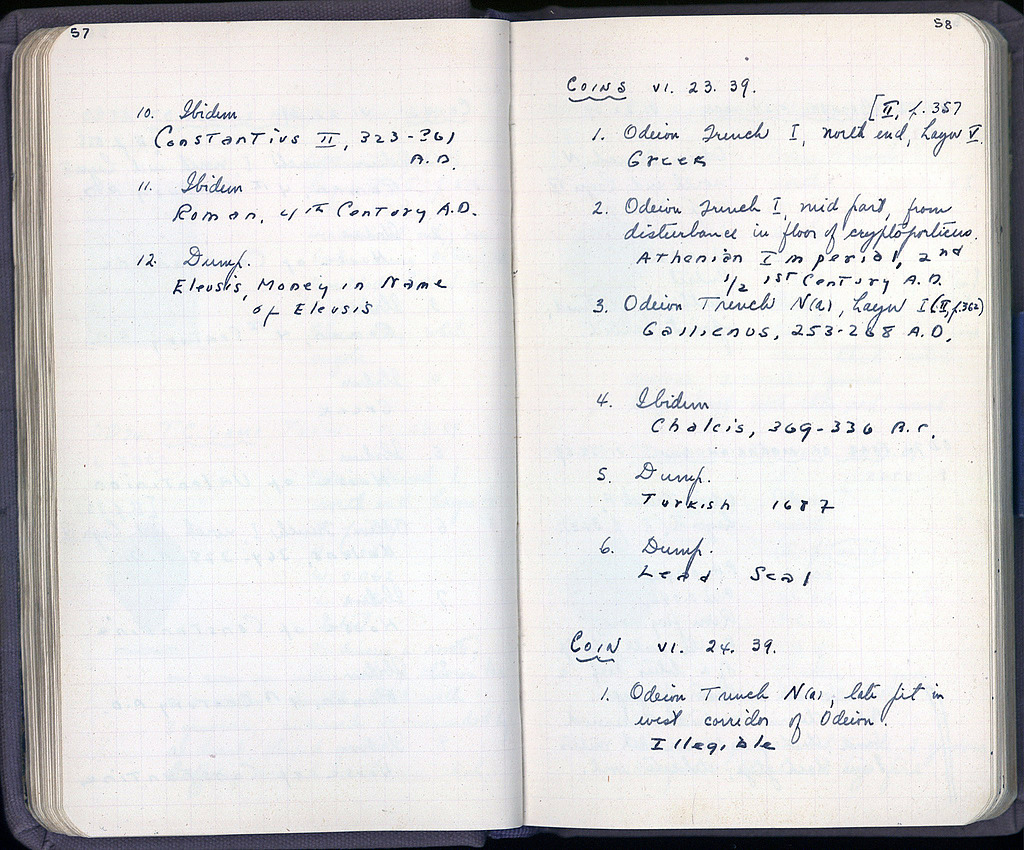 57
10. Ibidem
Constantius II, 323-361
A.D.
11. Ibidem
Roman, 4th Century A.D.
12. Dump.
Eleusis, Money in Name
of Eleusis
58
Coins VI. 23. 39.
[II, p. 357
1. Odeion Trench I, north end, Layer V.
Greek
2. Odeion Trench I, mid part, from
disturbance in floor of cryptoporticus.
Athenian Imperial, 2nd
1/2 1st Century A.D.
3. Odeion Trench N(a), Layer I (II, p. 362)
Gallienus, 253-268 A.D.
4. Ibidem
Chalcis, 369-336 B.C.
5. Dump.
Turkish 1687
6. Dump.
Lead Seal
Coin VI. 24. 39.
1. Odeion Trench N(a), late pit in
west corridor of Odeion.
Illegible